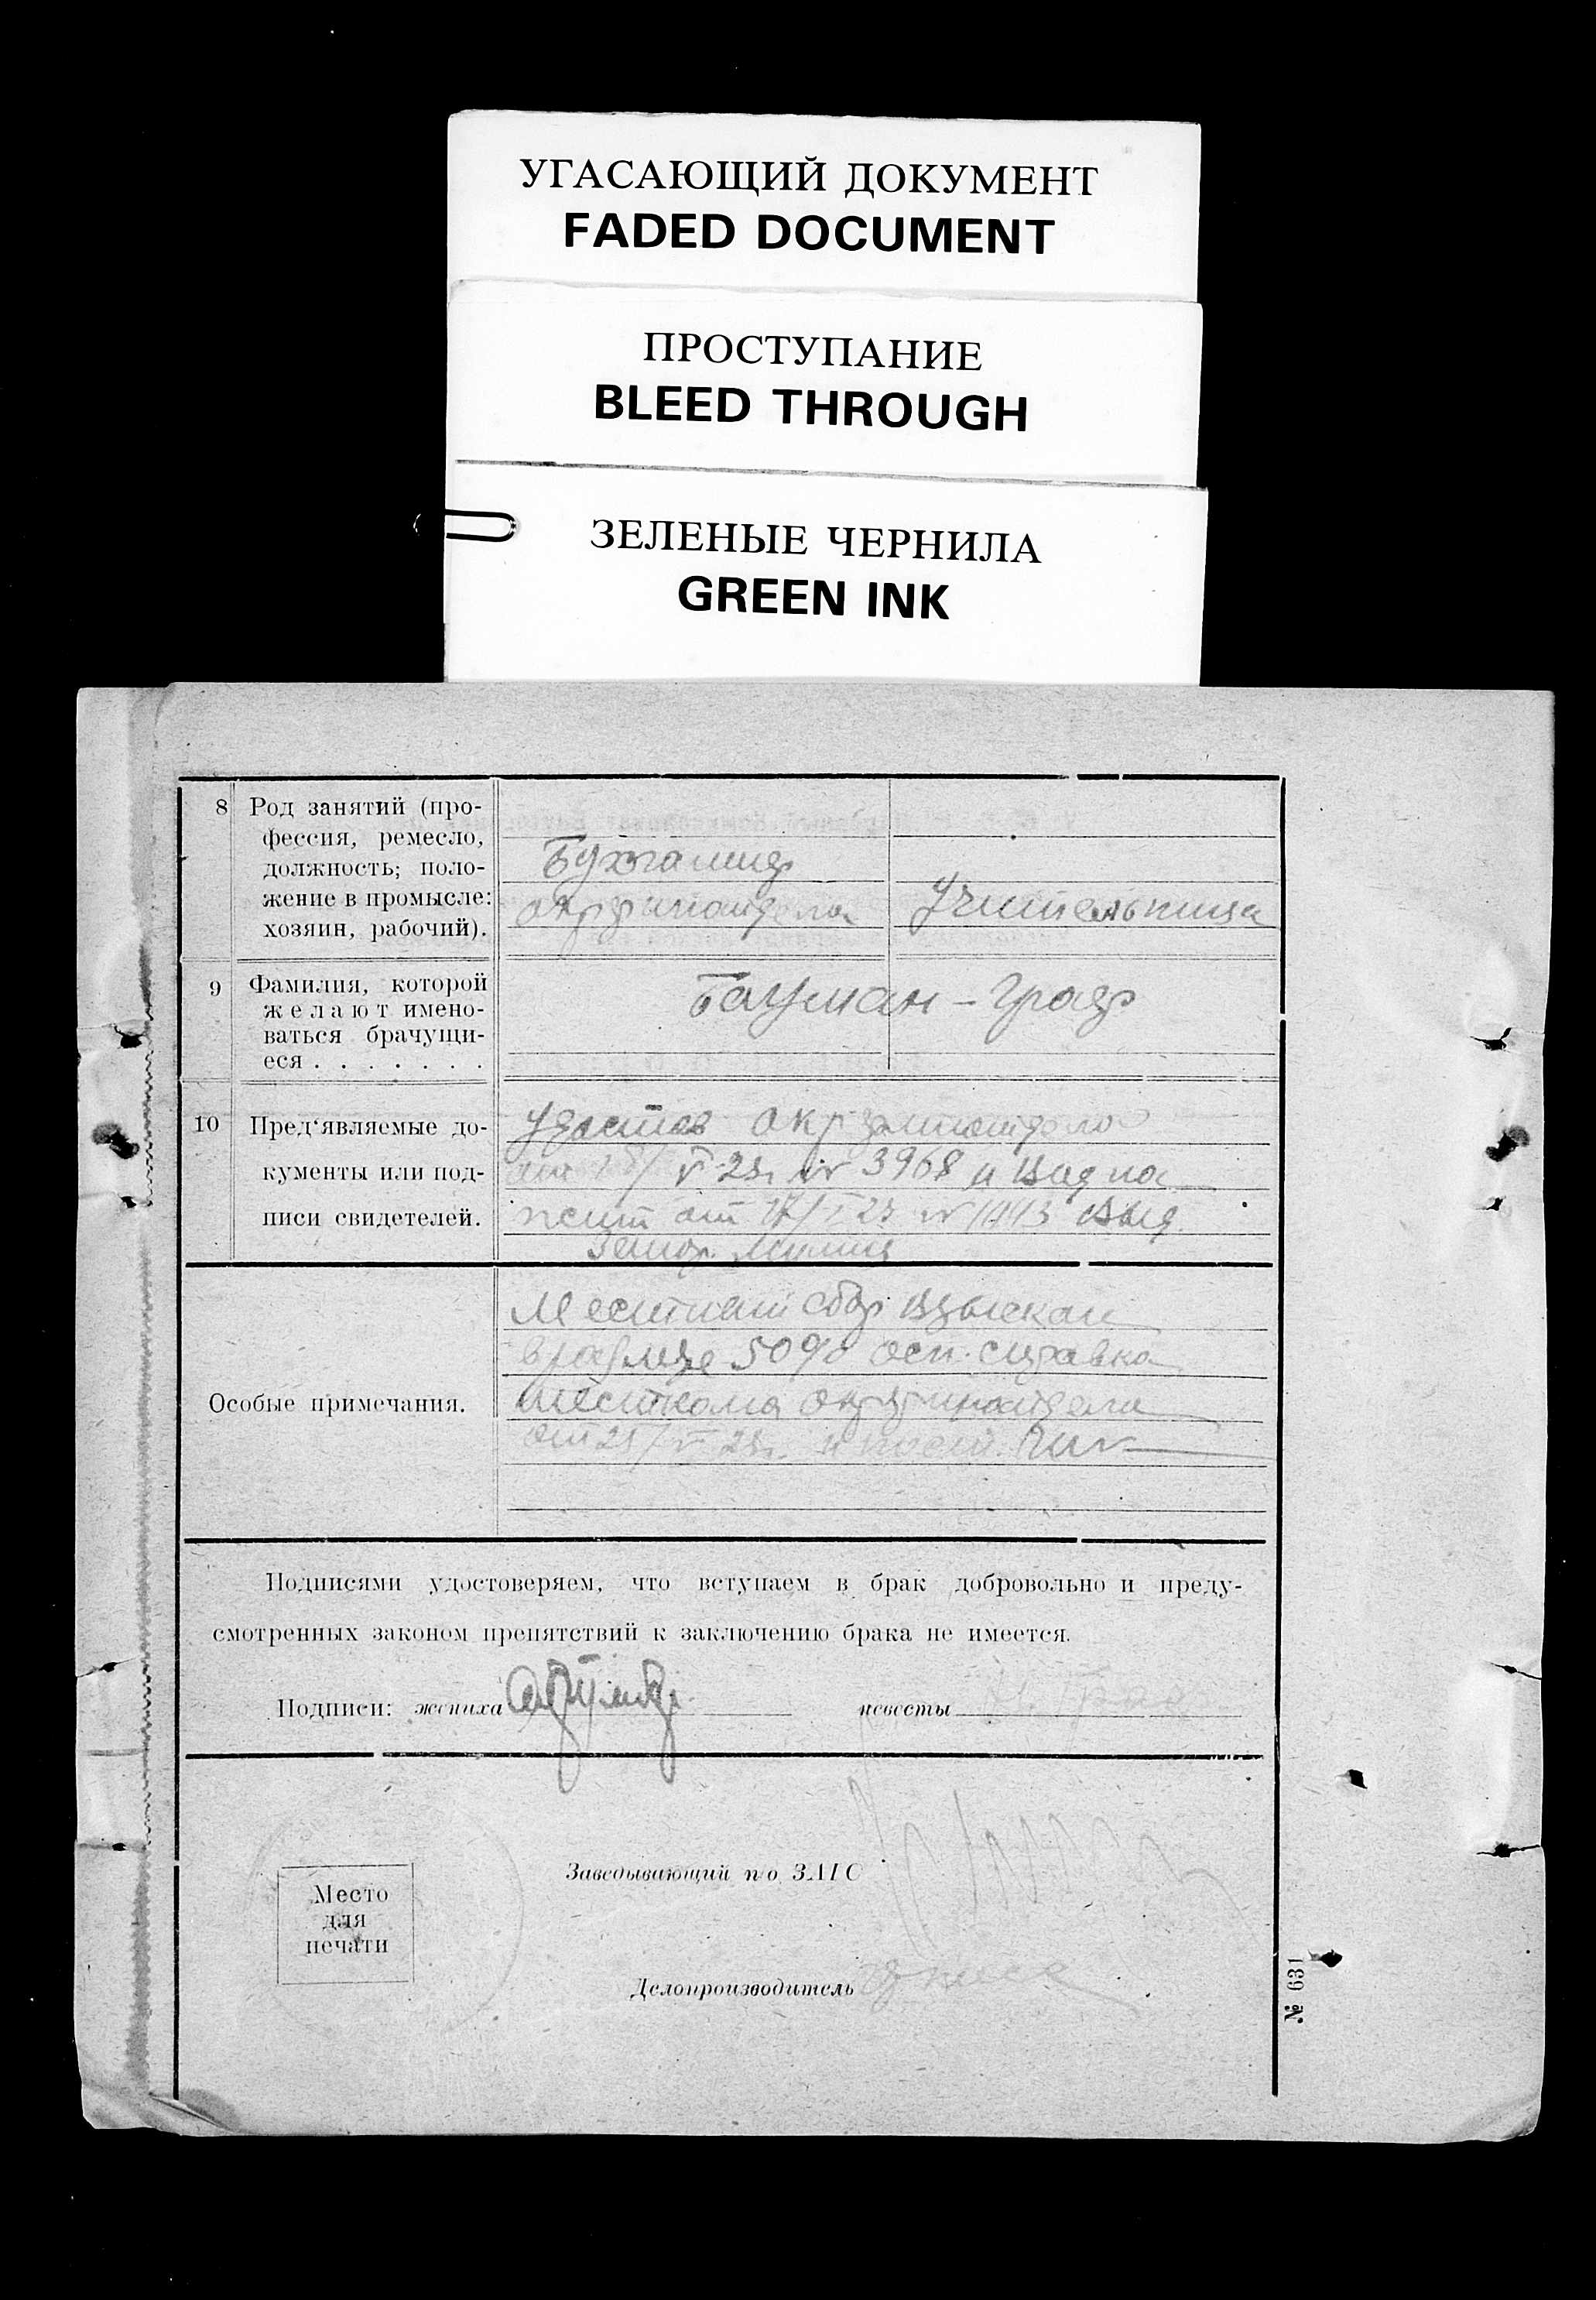 УГАСАЮЩИЙ ДОКУМЕНТ
FADED DOCUMENT
ПРОСТУПАНИЕ
BLEED THROUGH
ЗЕЛЕНЫЕ ЧЕРНИЛА
GREEN INK
8 Род занятий (про-
фессия, ремесло,
должность; поло-
жение в промысле:
хозяин, рабочий).
Бухгалтер
окрфинотдела
Учительница
9 Фамилия, которой
желают имено-
ваться брачущи-
еся . . . . . . .
Бауман - Граф
10 Пред'являемые до-
кументы или под-
писи свидетелей.
Удостов окрфинотдела
V 23г № 3968 и вид на
жит от 17/I 23 № 1443 выд.
милиц
Особые примечания.
Местный сбор взыскан
в размере 50% осн. справка
месткома окрфинотдела
от 25/V 23г. и пост.
Подписями удостоверяем, что вступаем в брак добровольно и преду-
смотренных законом препятствий к заключению брака не имеется.
Подписи: жениха невесты Граф
Заведывающий п/о ЗАГС
Место
для
печати
Делопроизводитель
№ 631